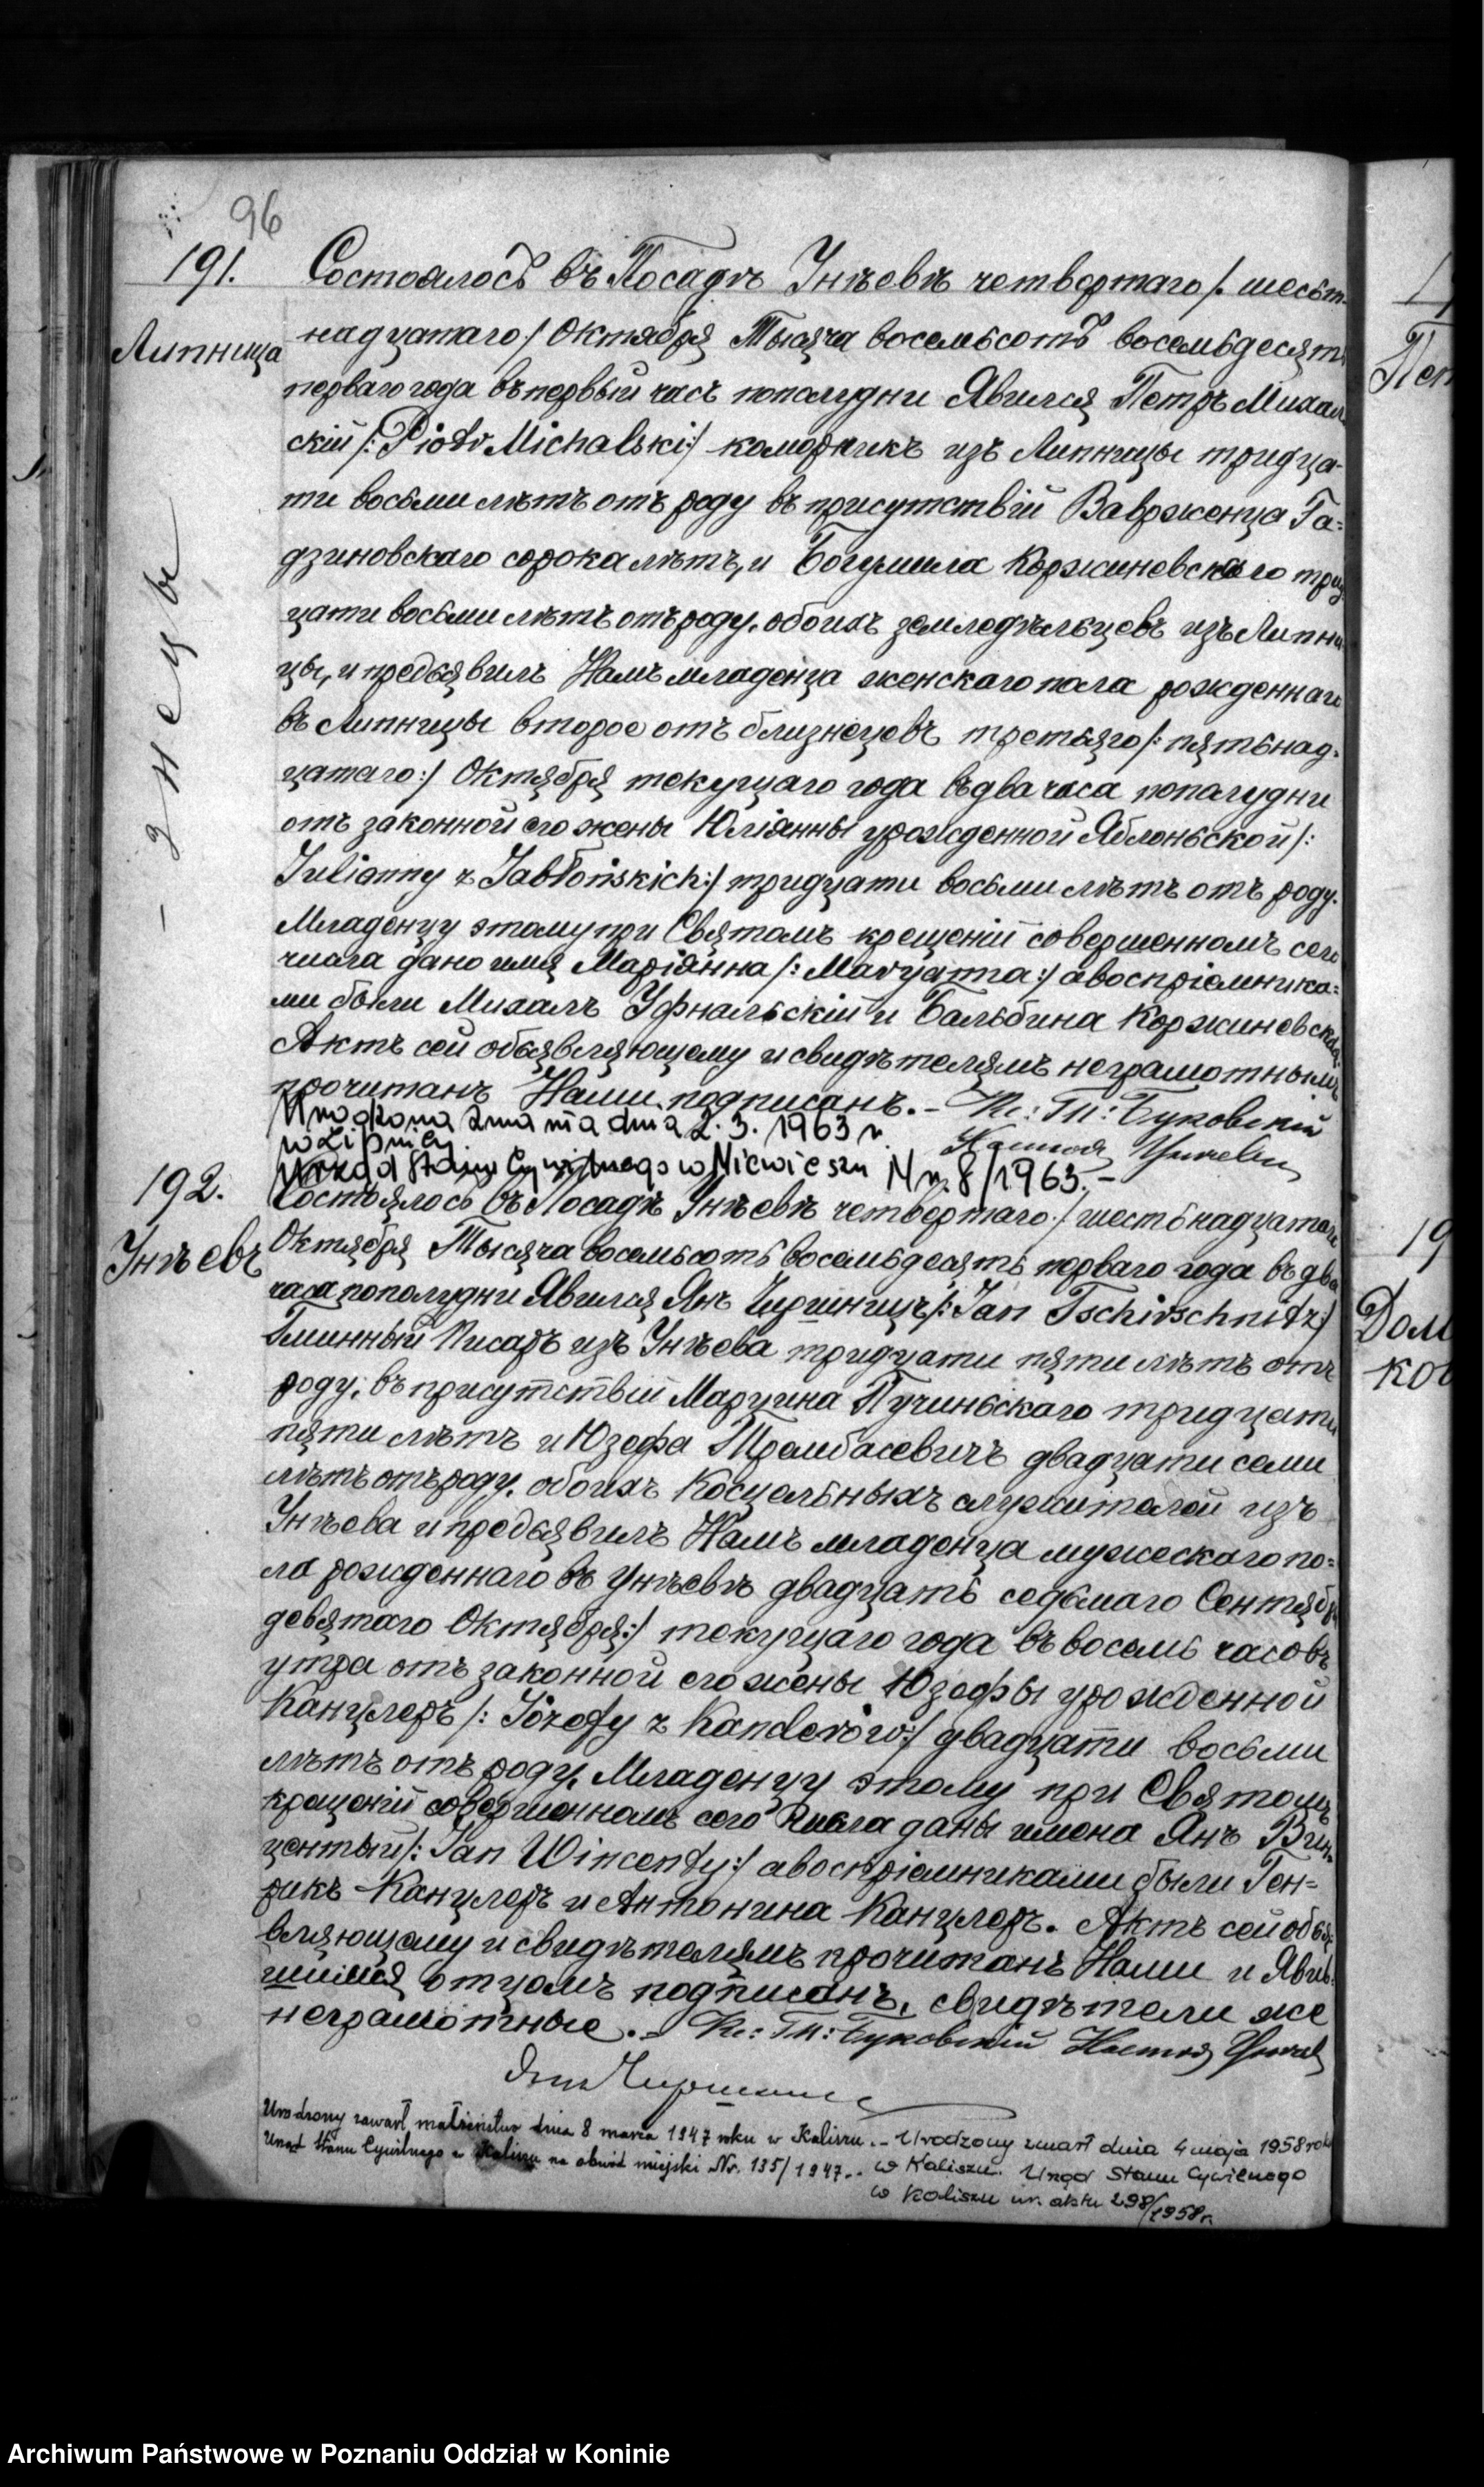 96
191.
Липница
Состоялось въ Посадѣ Унѣевѣ четвертаго /: шест-
надцатаго :/ Октября Тысяча восемьсотъ восемьдесятъ
перваго года въ первый часъ пополудни Явился Петръ Михаль
скій /: Piotr Michalski :/ коморникъ изъ Липницы тридца-
ти восьми лѣтъ отъ роду въ присутствій Вавржеица Га=
дзиновскаго сорока лѣтъ, и Богумила Коржиневскаго трид
цати восьми лѣтъ отъ роду, обоихъ земледѣльцевъ изъ Липни
цы, и предъявилъ Намъ младенца женскаго пола рожденнаго
въ Липницы второе отъ близнецовъ третьяго /: пятьнад-
цатаго :/ Октября текущаго года въ два часа пополудни
отъ законной его жены Юліянны урожденной Яблоньской /:
Julianny z Jabłońskich :/ тридцати восьми лѣтъ отъ роду.
Младенцу этому при Святомъ крещеніи совершенномъ сего
числа дано имя Маріянна /: Maryanna :/ а воспріемника=
ми были Михалъ Уфнальскій и Бальбина Коржиневская.
Актъ сей объявляющему и свидѣтелямъ неграмотнымъ
прочитанъ Нами подписанъ. – Кс: Т: Буковскій
Urodzona zmarła dnia 2.3.1963 r.
w Lipnicy
Urząd Stanu Cywilnego w Niewieszu Nr. 8/1963. –
– знецы
192.
Унѣевъ
Состоялось въ Посадѣ Унѣевѣ четвертаго /: шестьнадцатаго
Октября Тысяча восемьсотъ восемьдесятъ перваго года въ два
часа пополудни Явился Янъ Чиршницъ /: Jan Tschirschnitz :/
Гминный Писарь изъ Унѣева тридцати пяти лѣтъ отъ
роду, въ присутствій Марцина Пучиньскаго тридцати
пяти лѣтъ и Юзефа Тромбасевичъ двадцати семи
лѣтъ отъ роду, обоихъ Косцельныхъ служителей изъ
Унѣева и предъявилъ Намъ младенца мужескаго по=
ла рожденнаго въ Унѣевѣ двадцать седьмаго Сентября
девятаго Октября :/ текущаго года въ восемь часовъ
утра отъ законной его жены Юзефы урожденной
Канцлеръ /: Józefy z Kanclerów :/ двадцати восьми
лѣтъ отъ роду, Младенцу этому при Святомъ
крещеній совершенномъ сего числа даны имена Янъ Вин=
центый /: Jan Wincenty :/ а воспріемниками были Ген=
рикъ Канцлеръ и Антонина Канцлеръ. Актъ сей объя
вляющему и свидѣтелямъ прочитанъ Нами и Явив
шимся отцомъ подписанъ, свидѣтели же
неграмотные. – Кс: Т: Буковскій
Urodzony zawarł małżeństwo dnia 8 marca 1947 roku w Kaliszu. –
Urząd Stanu Cywilnego w Kaliszu na obwód miejski Nr. 135/1947. –
Urodzony zmarł dnia 4 maja 1958 roku
w Kaliszu. Urząd Stanu Cywilnego
w Kaliszu nr. aktu 298/1958 r.
Archiwum Państwowe w Poznaniu Oddział w Koninie